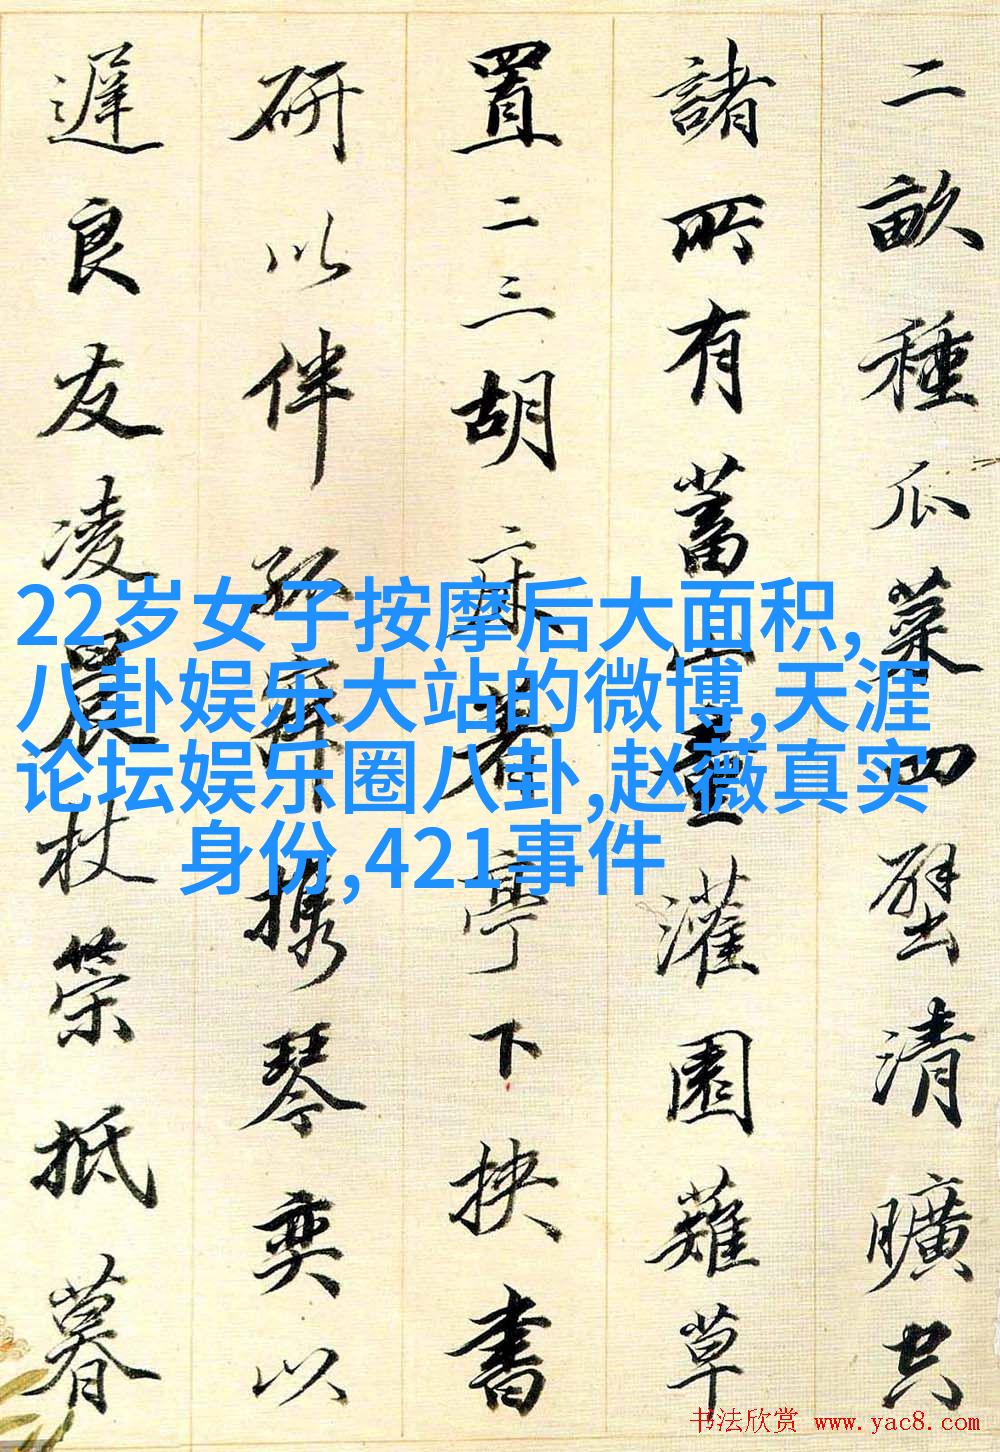 二畝種瓜菜四壁清曠空
諸所有蓄山童灌園薙草
置二三胡床著亭下挾書
研以伴孤寂携琴奕以
遲良友凌晨杖策抵暮
22岁女子按摩后大面积,
八卦娱乐大站的微博,天涯
论坛娱乐圈八卦,赵薇真实
身份,421事件
书法欣赏 www.yac8.com